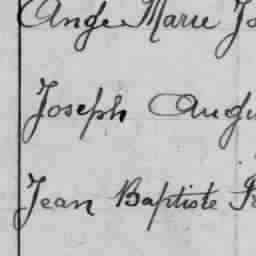 Ange Marie Jo
Joseph Augu
Jean Baptiste